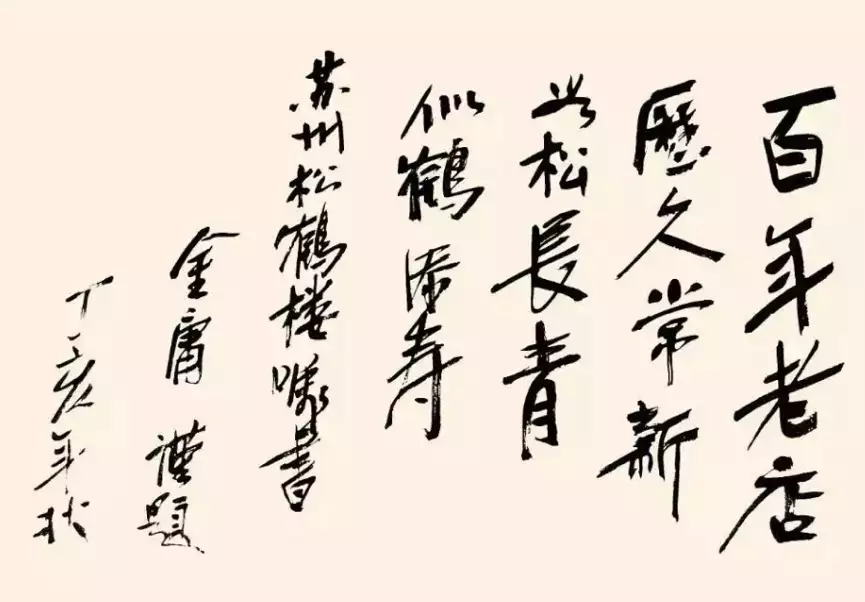 百年老店
歷久常新
如松長青
似鶴添寿
苏州松鶴楼嘱書
金庸 謹題
丁亥年秋